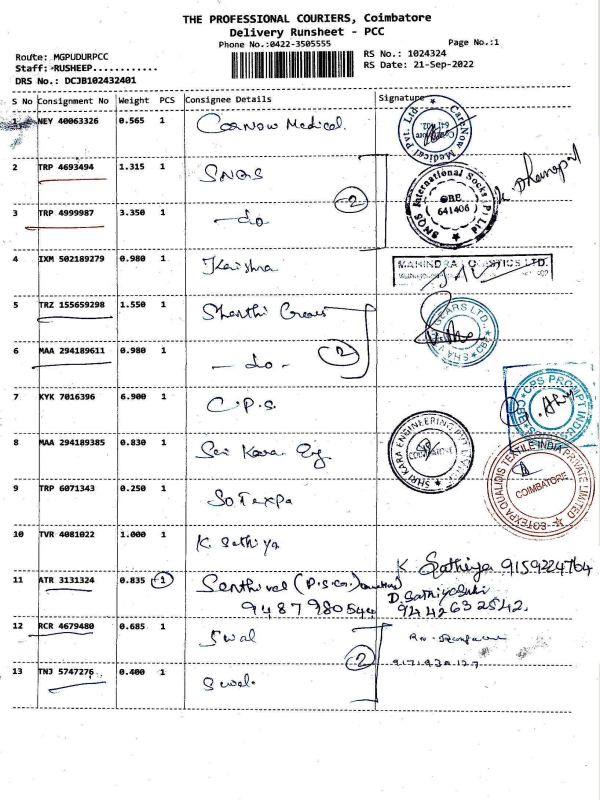 THE PROFESSIONAL COURIERS, Coimbatore
Delivery Runsheet - PCC
Phone No.:0422-3505555
Page No.:1
Route: MGPUDURPCC
RS No.: 1024324
Staff: RUSHEEP............
RS Date: 21-Sep-2022
DRS No.: DCJB102432401
S No Consignment No Weight PCS Consignee Details Signature
1 NEY 40063326 0.565 1 CareNow Medical
CareNow Medical Pvt. Ltd.
2 TRP 4693494 1.315 1 SNQS
SNQS International Socks (P) Ltd
CBE
641406
2
3 TRP 4999987 3.350 1 - do
4 IXM 502189279 0.980 1 Krishna
MAHINDRA LOGISTICS LTD.
5 TRZ 155659298 1.550 1 Shanthi Gears
GEARS LTD.
6 MAA 294189611 0.980 1 - do -
2
7 KYK 7016396 6.900 1 C.P.S.
CPS PROMPT
8 MAA 294189385 0.830 1 Sri Kara Eng
SHRI KARA ENGINEERING PVT LTD
COIMBATORE
9 TRP 6071343 0.250 1 SoTexpa
SOTEXPA QUALIDIS TEXTILE INDIA PRIVATE LIMITED
COIMBATORE
10 TVR 4081022 1.000 1 K. Sathiya
K Sathiya 9159224764
11 ATR 3131324 0.835 1 Senthivel (P.S.G.)
9487980544
9442632542
12 RCR 4679480 0.685 1 Swal
2
13 TNJ 5747276 0.400 1 Swal